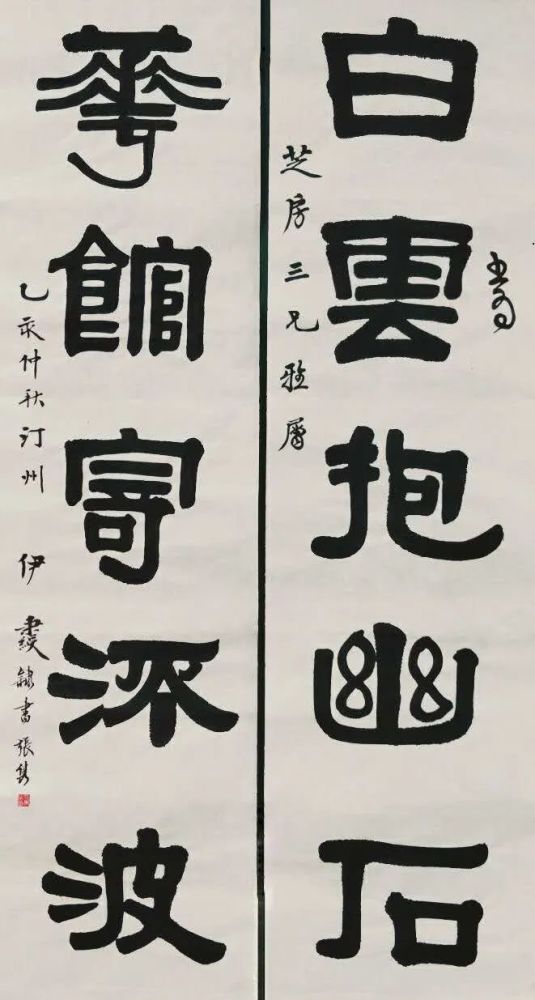 白雲抱幽石
書為
芝房三兄雅屬
華館寄㳅波
乙亥仲秋汀州 伊秉綬隸書 張